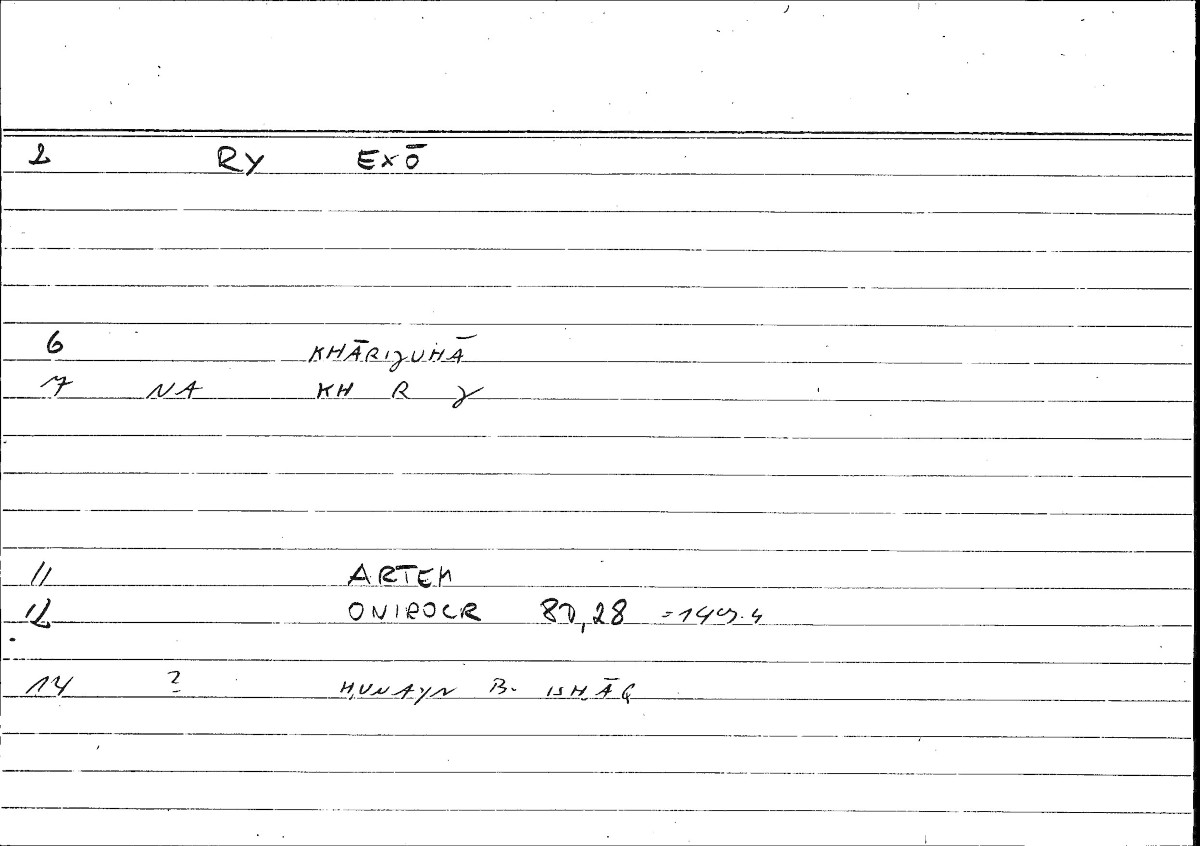 2 RY EXŌ
6 KHĀRIJUHĀ
7 NA KH R J
11 ARTEM
12 ONIROCR 80,28 =149.4
14 ? ḤUNAYN B. ISḤĀQ